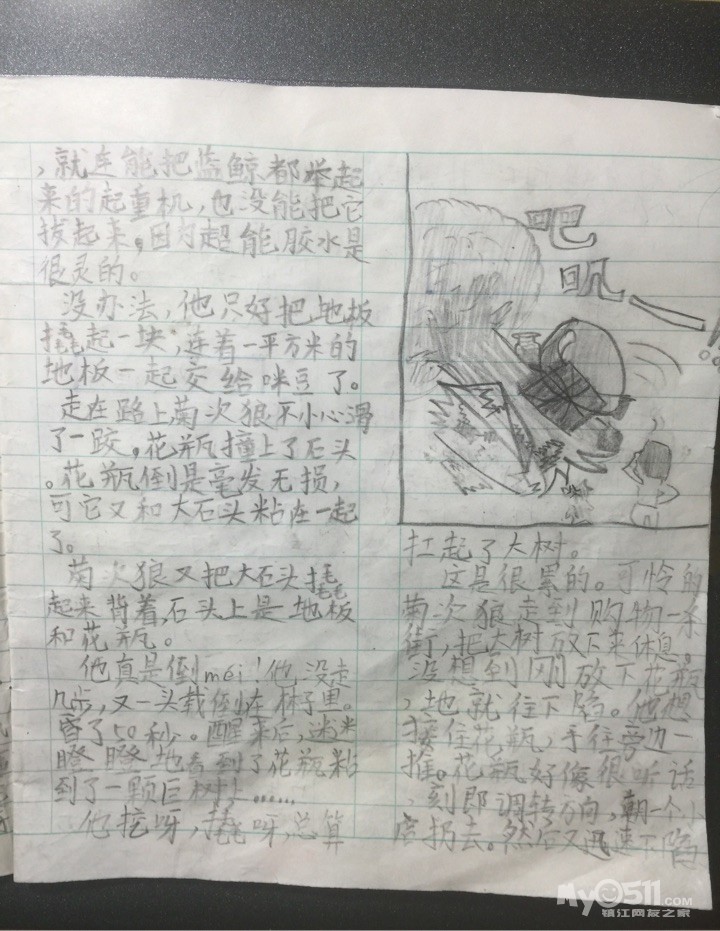 ，就连能把蓝鲸都举起
来的起重机，也没能把它
拔起来。因为超能胶水是
很灵的。
没办法，他只好把地板
撬起一块，连着一平方米的
地板一起交给咪豆了。
走在路上菊次狼不小心滑
了一跤，花瓶撞上了石头
。花瓶倒是毫发无损，
可它又和大石头粘在一起
了。
菊次狼又把大石头撬
起来背着，石头上是地板
和花瓶。
他真是倒méi！他没走
几步，又一头栽倒在林子里。
昏了50秒。醒来后，迷迷
瞪瞪地看到了花瓶粘
到了一颗巨树上……
他挖呀，撬呀，总算
吧
呎
扛起了大树。
这是很累的。可怜的
菊次狼走到购物一条
街，把大树放下来休息。
没想到刚放下花瓶
，地就往下陷。他想
接住花瓶，手往旁边一
推。花瓶好像很听话
，刻即调转方向，朝一个小
店拐去。然后又迅速下陷
My0511.COM
镇江网友之家